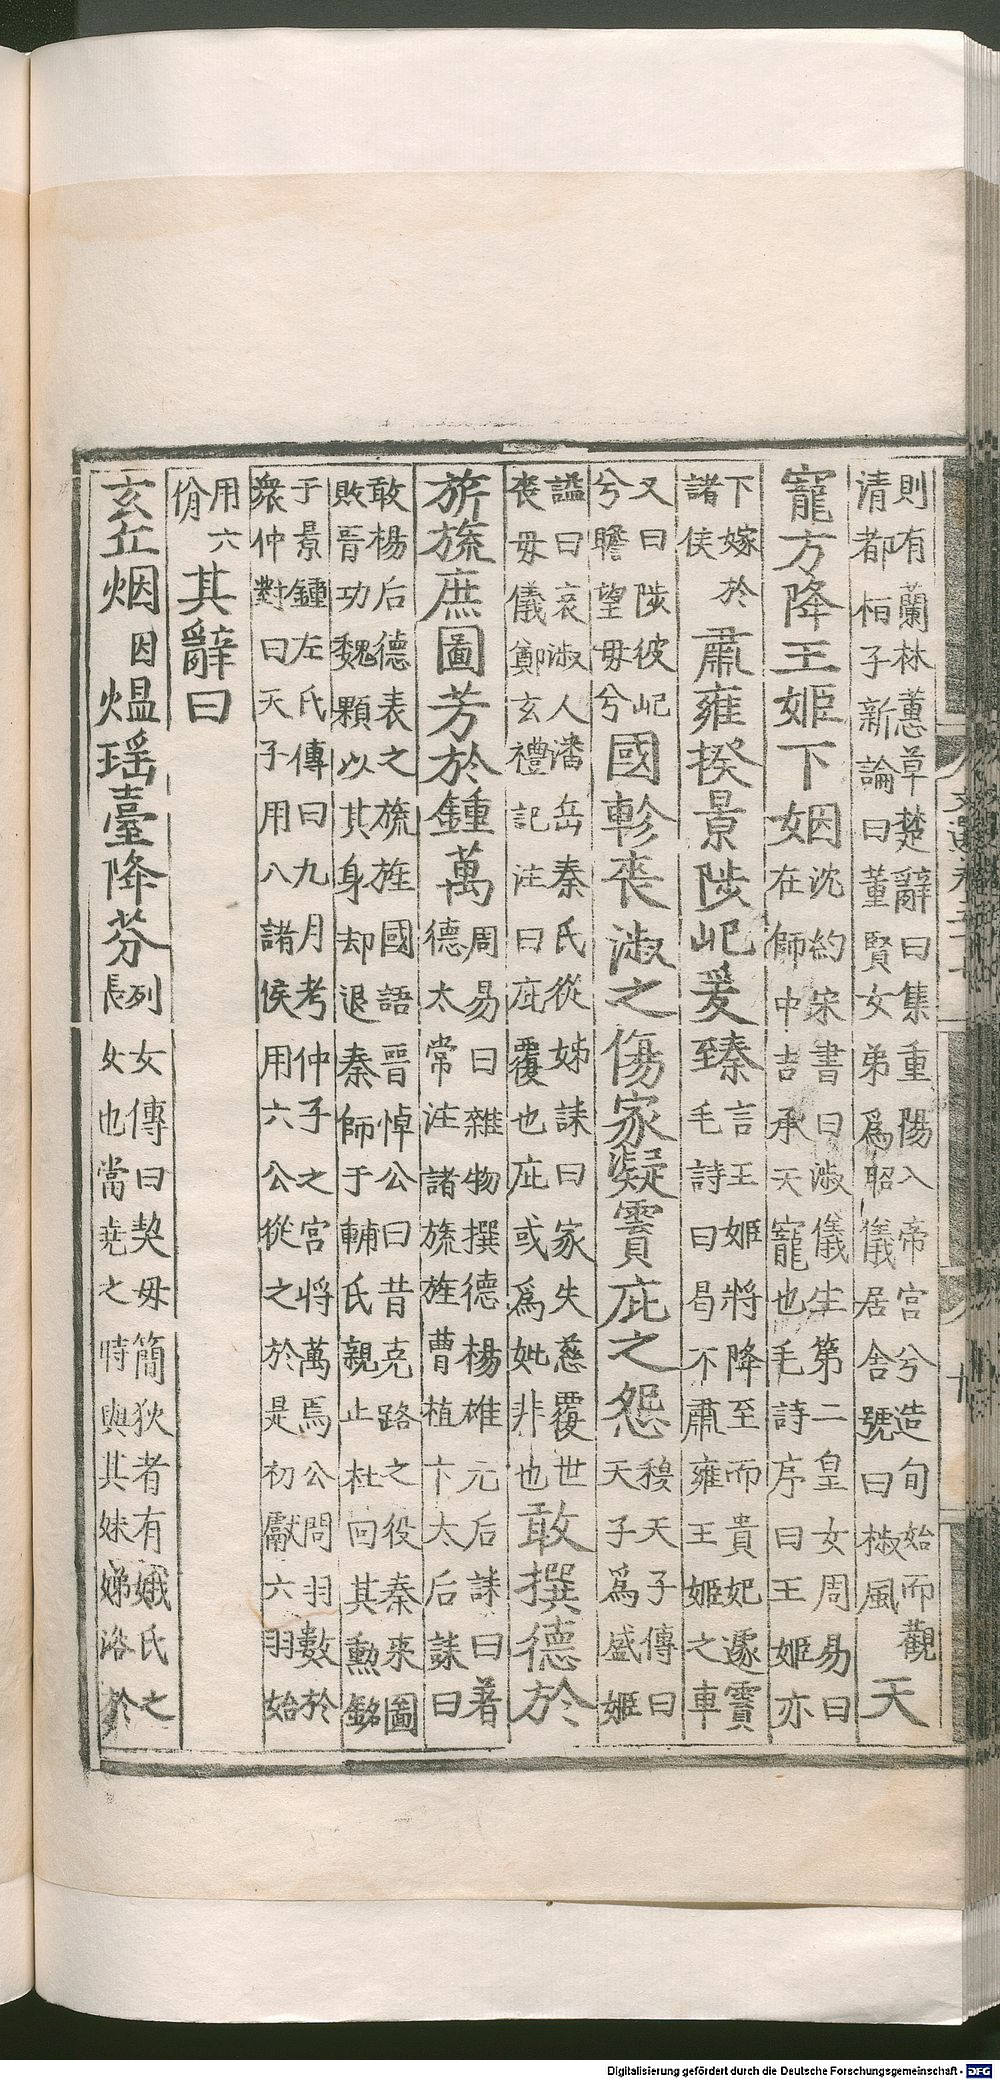 則有蘭林蕙草楚辭曰集重陽入帝宮兮造旬始而觀
清都桓子新論曰董賢女弟為昭儀居舍號曰椒風天
寵方降王姬下姻沈約宋書曰淑儀生第二皇女周易曰
在師中吉承天寵也毛詩序曰王姬亦
下嫁於
諸侯肅雍揆景陟屺爰臻言王姬將降至而貴妃遽霣
毛詩曰曷不肅雍王姬之車
又曰陟彼屺
兮瞻望母兮國軫喪淑之傷家凝霣庇之怨穆天子傳曰
天子為盛姬
謚曰哀淑人潘岳秦氏從姊誄曰家失慈覆世
喪母儀鄭玄禮記注曰庇覆也庇或為妣非也敢撰德於
旂旒庶圖芳於鍾萬周易曰雜物撰德楊雄元后誄曰著
德太常注諸旒旌曹植卞太后誄曰
敢楊后德表之旒旌國語晉悼公曰昔克路之役秦來圖
敗晉功魏顆以其身却退秦師于輔氏親止杜回其勳銘
于景鍾左氏傳曰九月考仲子之宮將萬焉公問羽數於
衆仲對曰天子用八諸侯用六公從之於是初獻六羽始
用六
佾其辭曰
玄丘烟因煴瑶臺降芬列女傳曰契母簡狄者有娥氏之
長女也當堯之時與其妹娣浴於
Digitalisierung gefördert durch die Deutsche Forschungsgemeinschaft - DFG